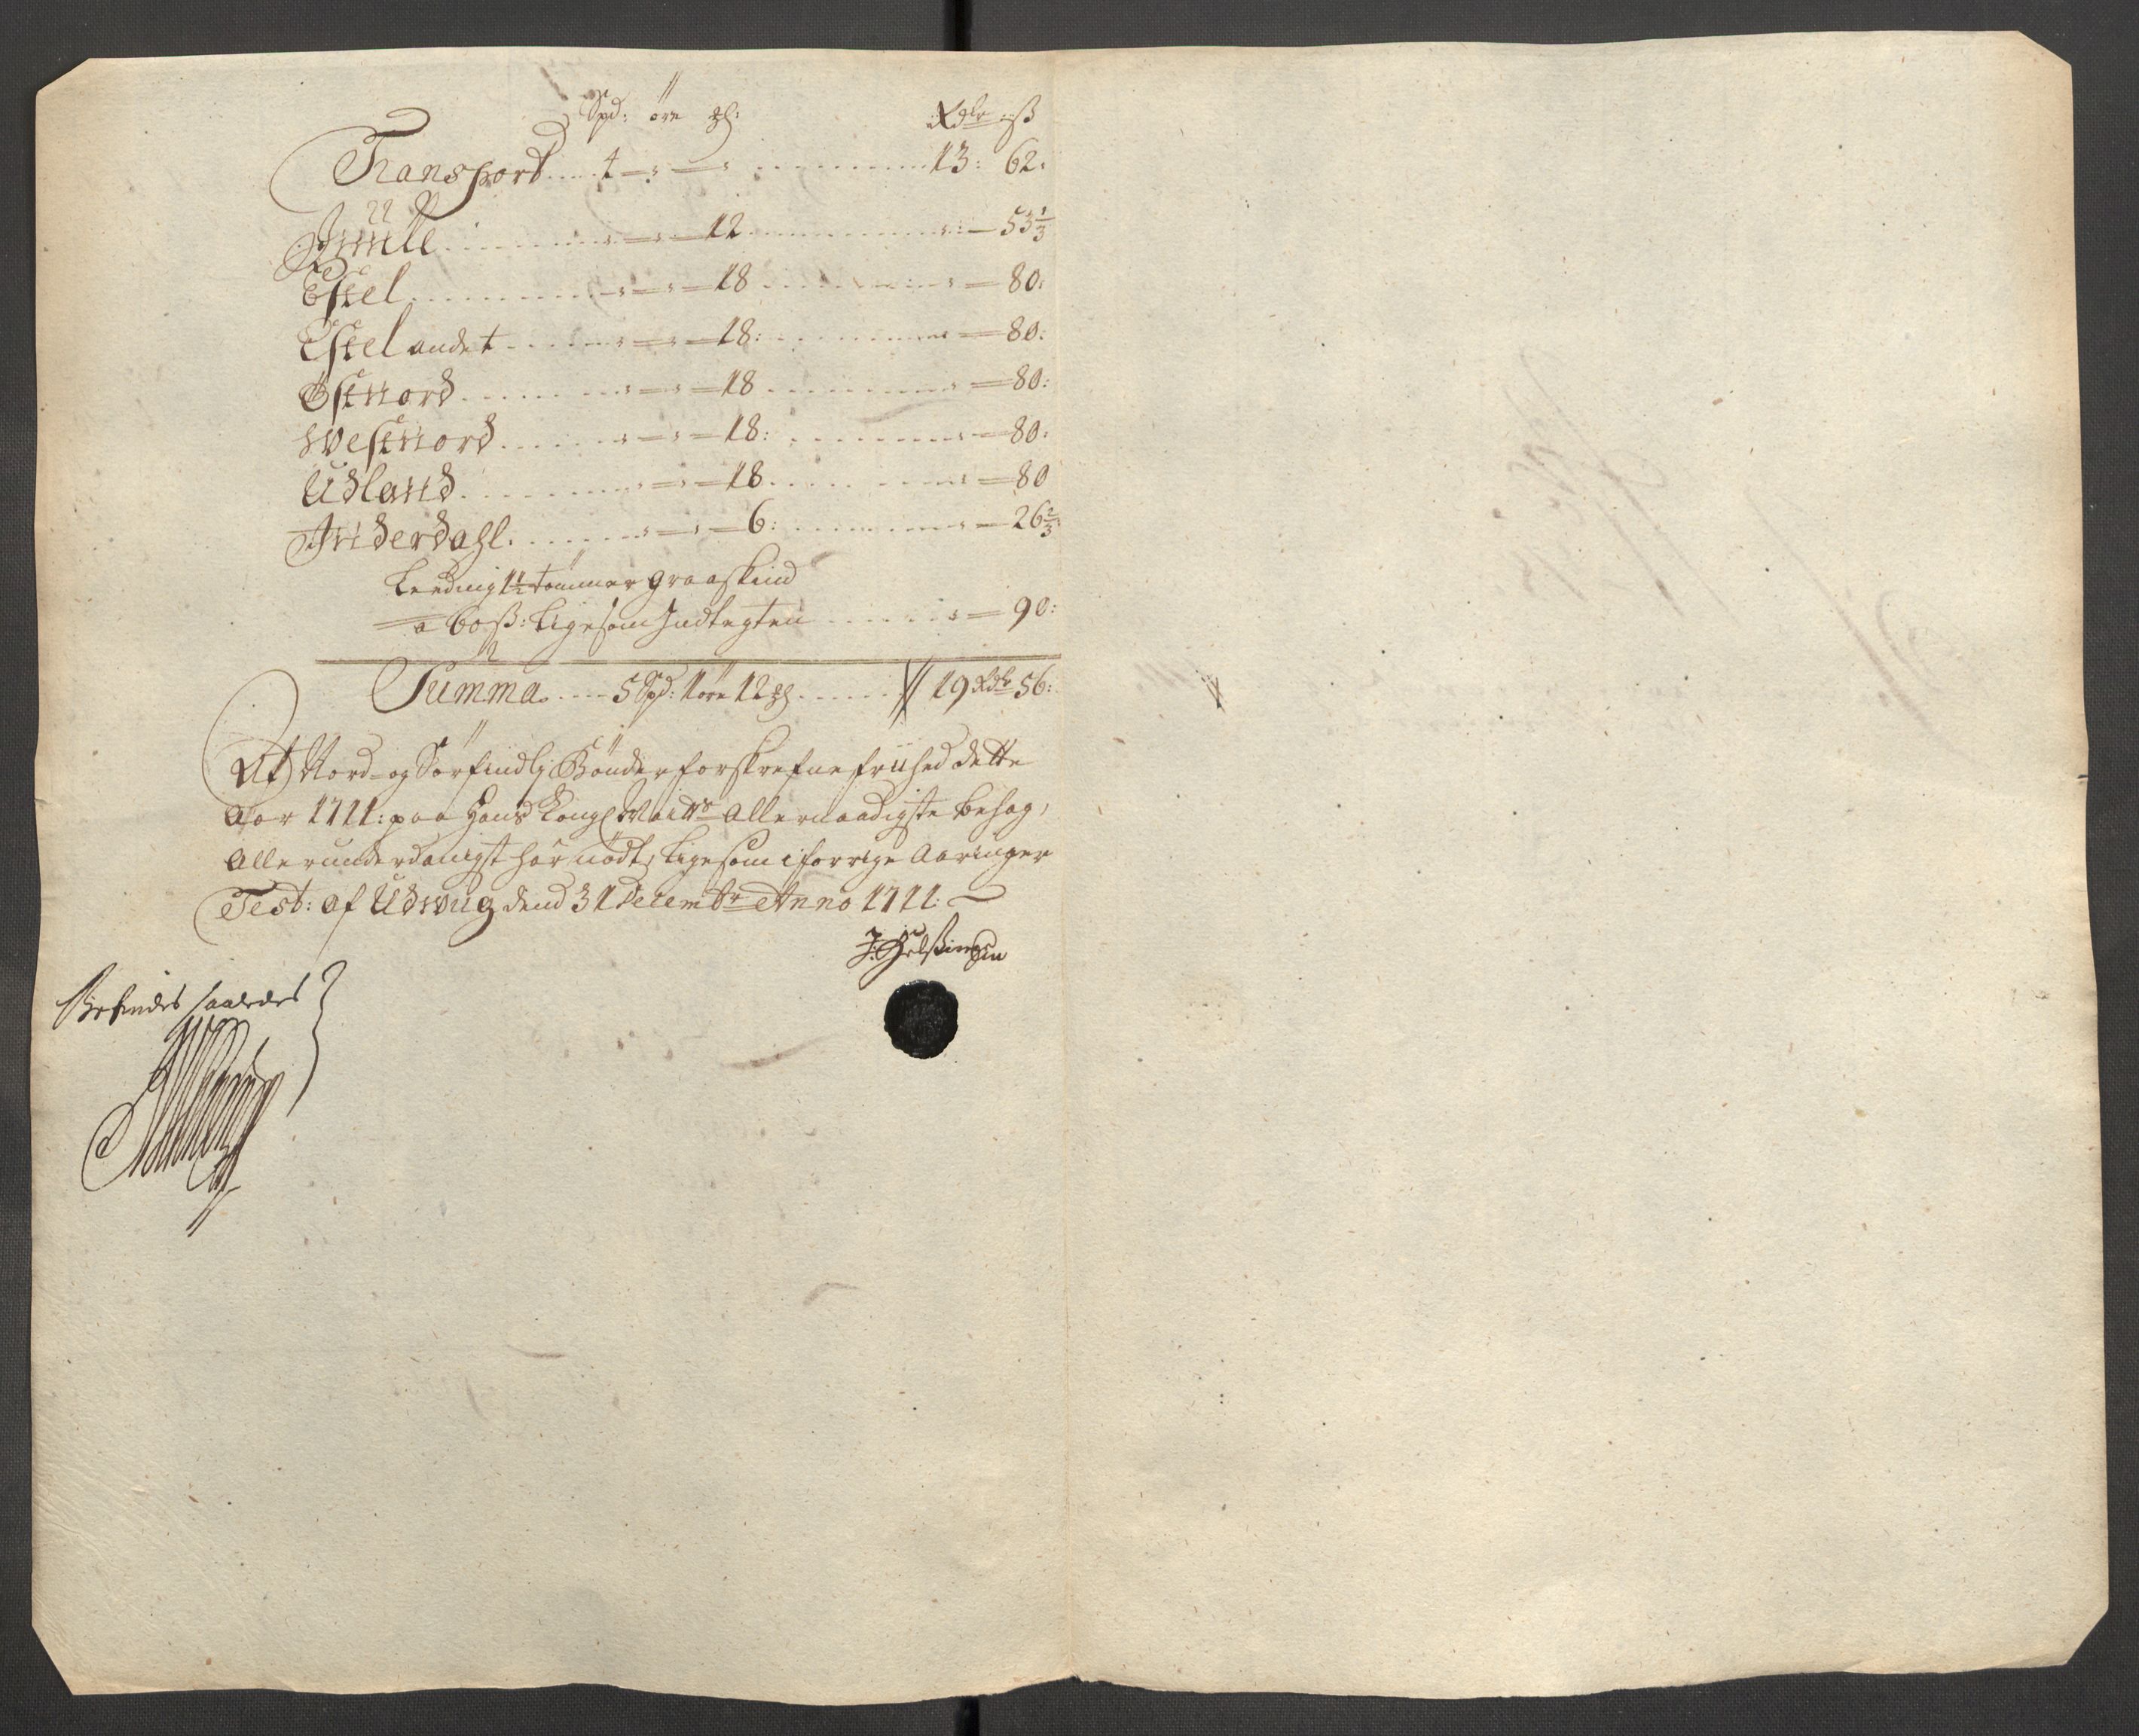 Spd: öre ꝑl: Rdlr ß
Transport .... 4 — : — : .......... 13: 62:
Juull .......... — : — 12 .......... : — 53 1/3
Estel .......... — : — 18 .......... — 80:
Estel andet .......... — : — 18: .......... — 80:
Ostnord .......... — : — 18 .......... — 80:
Westnord .......... — : — 18: .......... — 80:
Udland .......... — : — 18 .......... — 80
Inderdahl .......... — : — 6: .......... — 26 2/3
Leeding 1 1/2 tömmer graaskind
a 60 ß: Ligesom Indtegten .......... — 90:
Summa .... 5 Spd: 1 öre 12 ꝑl ...... 19 Rdlr 56:
At Nord- og Sörfindlj Bönder forskrefne friihed dette
Aar 1711: paa Hans Kongl Maitts Allernaadigste behag,
Allerunderdanigst har nödt, Ligesom i forrige Aaringer
Test: af Udwug dend 31 Decembr Anno 1711:
J: Helsingin
Befindes saaledes